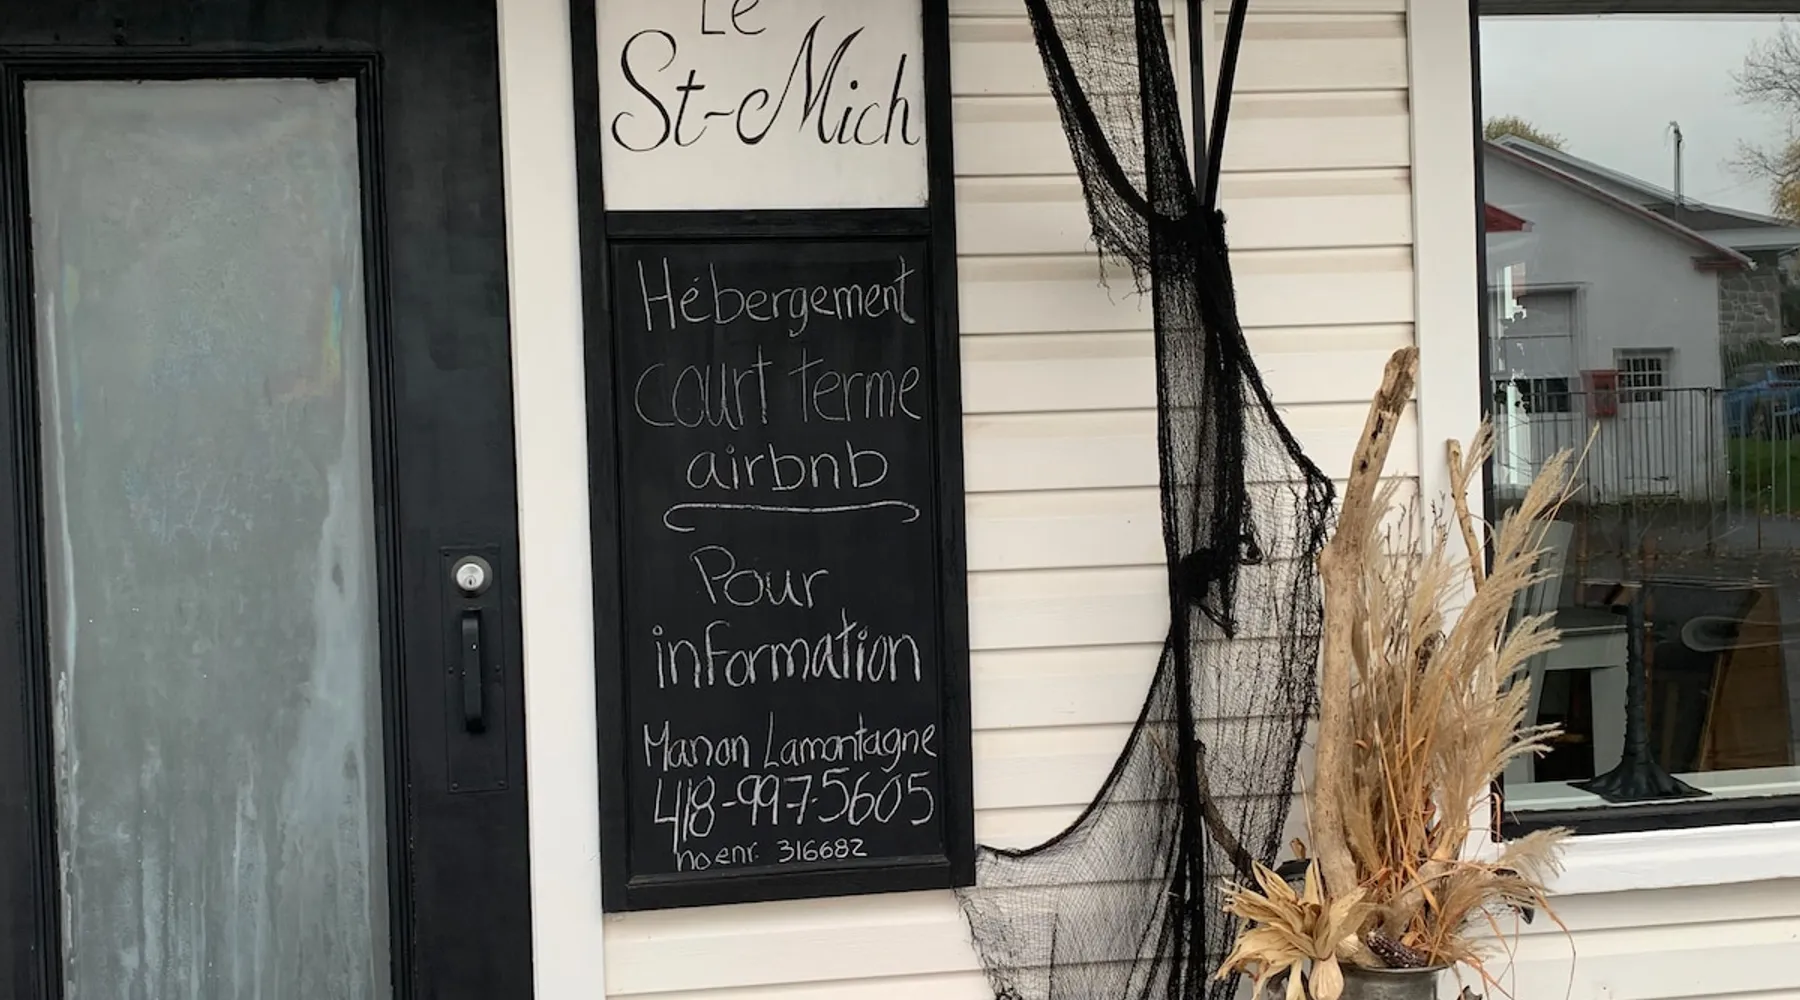 Le
St-Mich
Hébergement
court terme
airbnb
Pour
information
Manon Lamontagne
418-997-5605
no enr. 316682